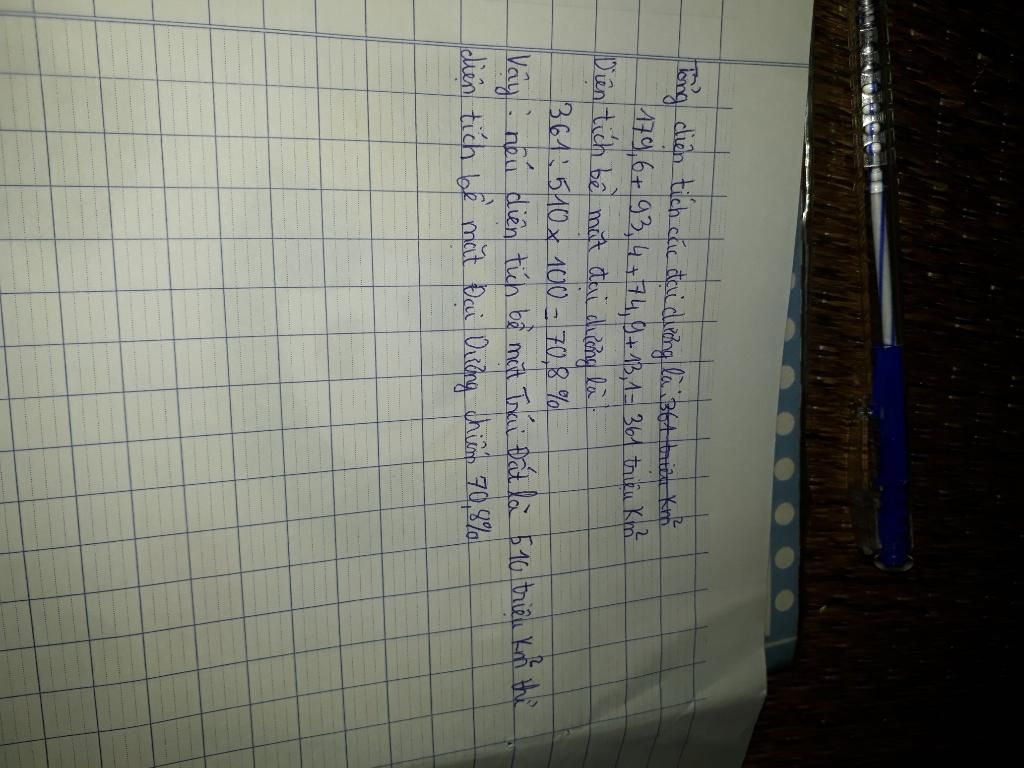 Tổng diện tích các đại dương là 361 triệu km²
179,6 + 93,4 + 74,9 + 13,1 = 361 triệu km²
Diện tích bề mặt đại dương là:
361 : 510 x 100 = 70,8%
Vậy : nếu diện tích bề mặt Trái Đất là 510 triệu km² thì
diện tích bề mặt Đại Dương chiếm 70,8%